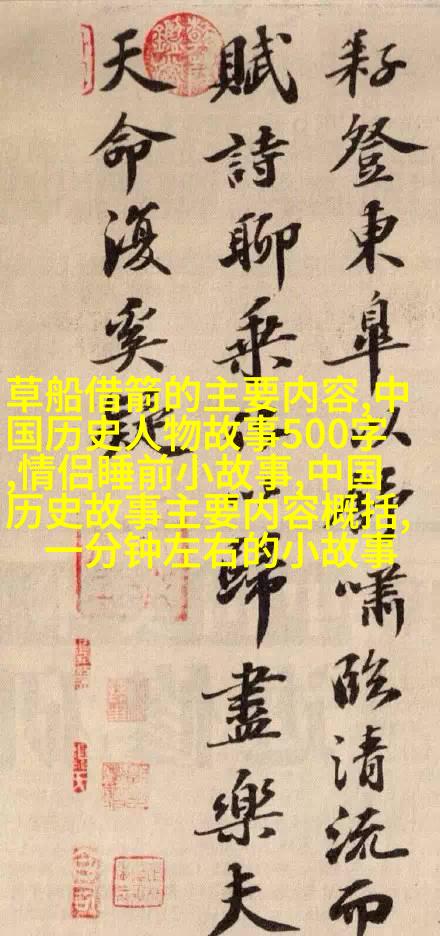 耔登東皐以舒嘯臨清流而
賦詩聊乘化以歸盡樂夫
天命復奚疑
草船借箭的主要内容,中
国历史人物故事500字
,情侣睡前小故事,中国
历史故事主要内容概括,
一分钟左右的小故事